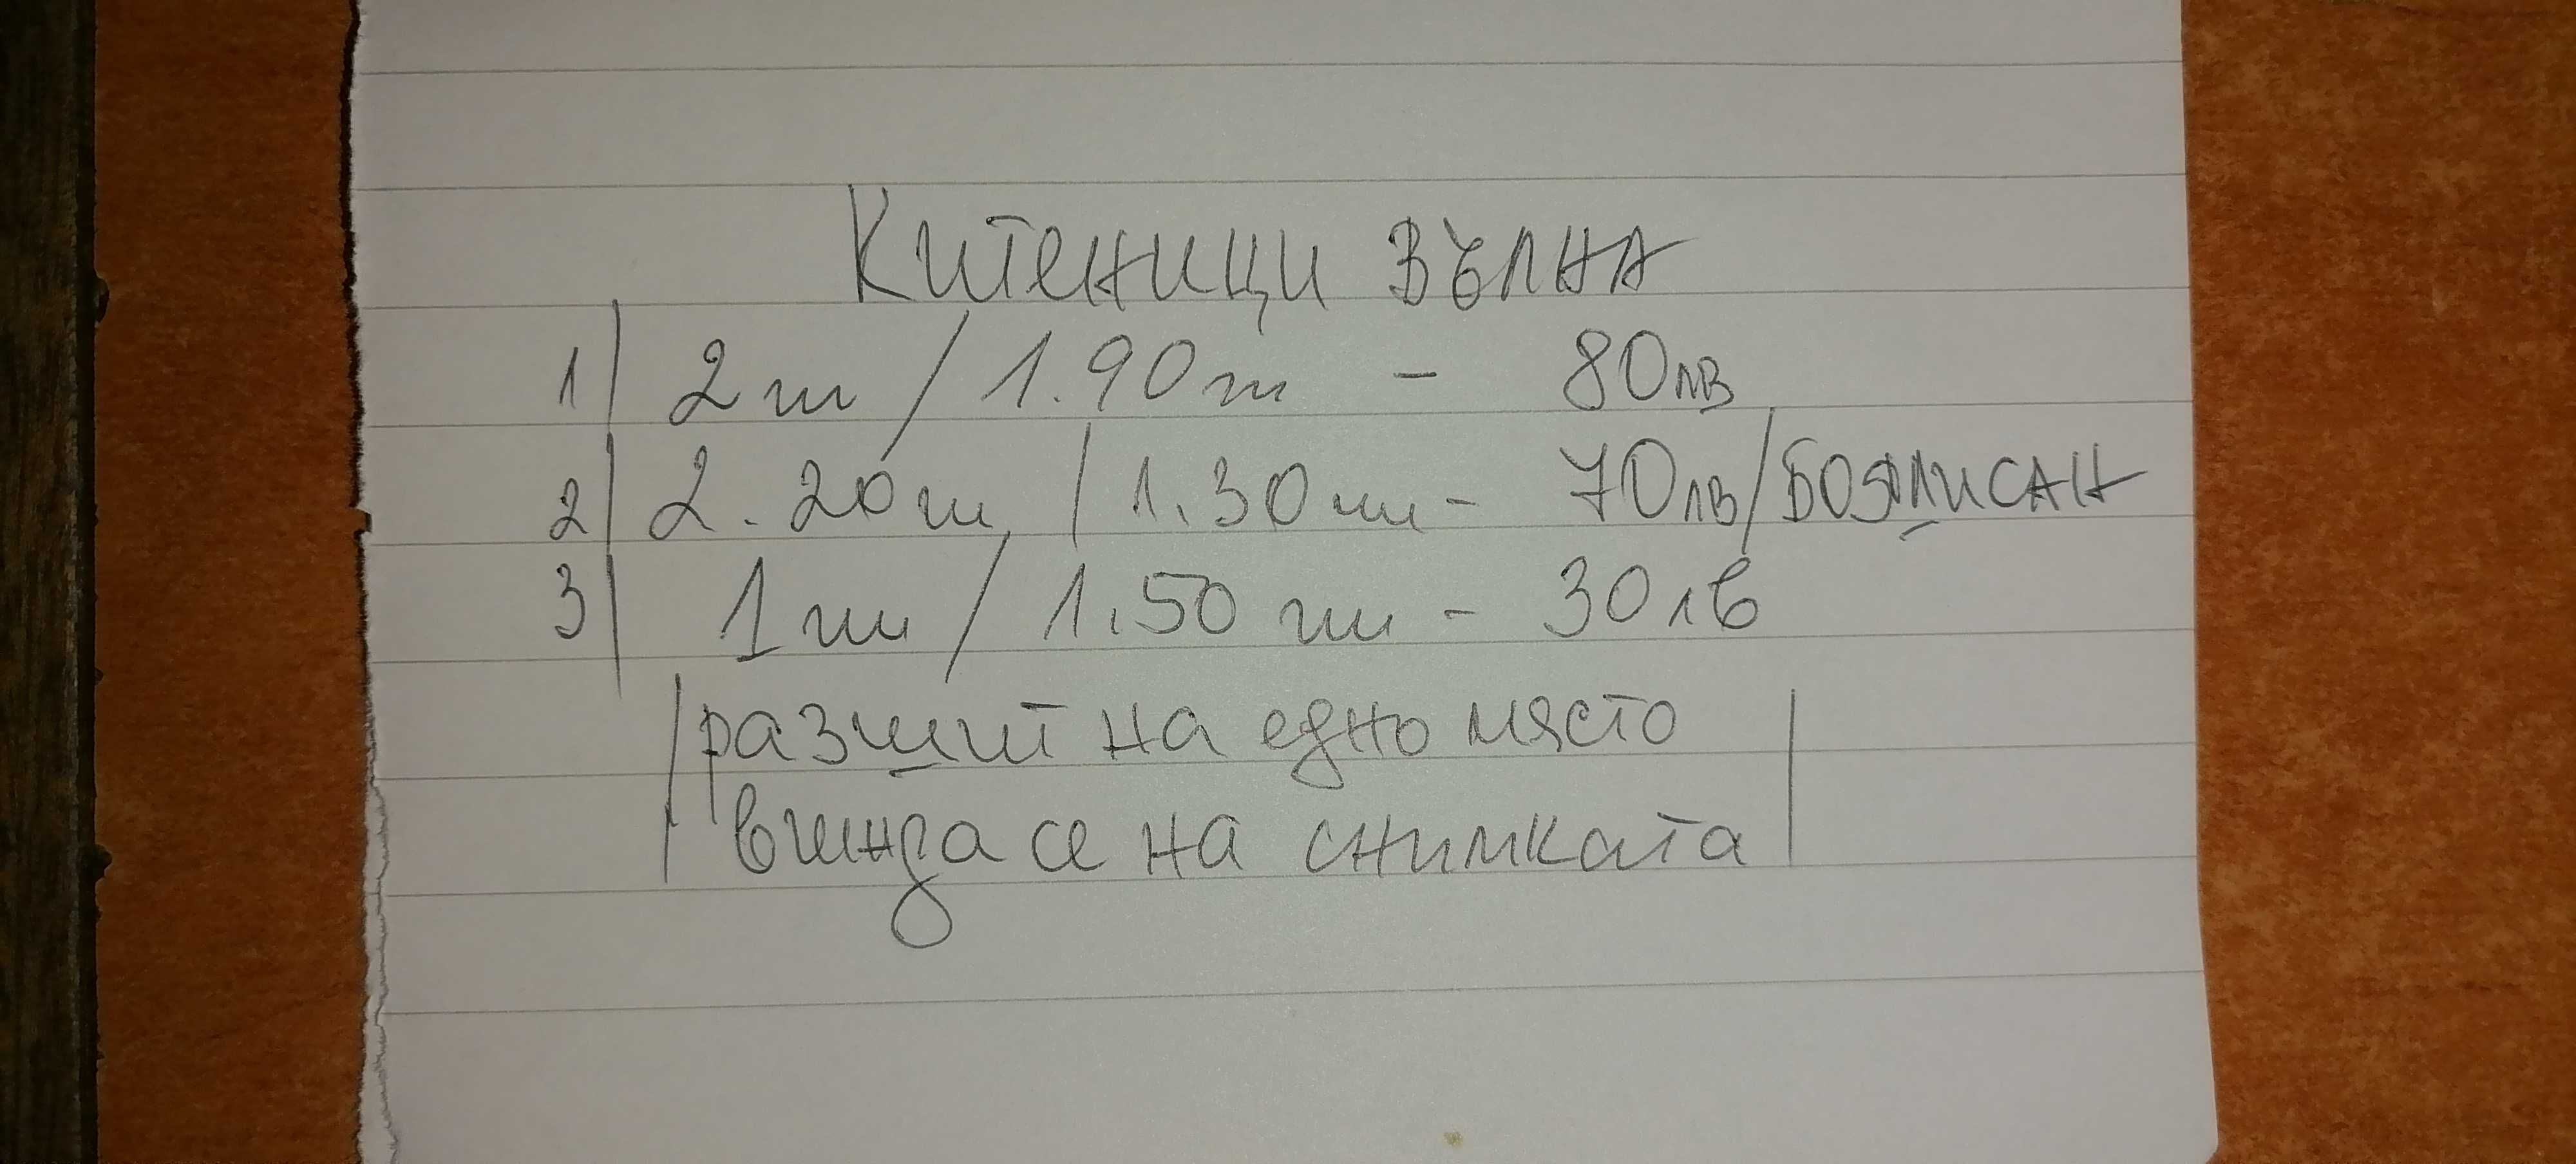 Китеници вълна
1/ 2m / 1.90m - 80лв
2/ 2.20m / 1.30m - 70лв/БОЯЛИСАН
3/ 1m / 1.50m - 30лв
/разшит на едно място
вижда се на снимката/